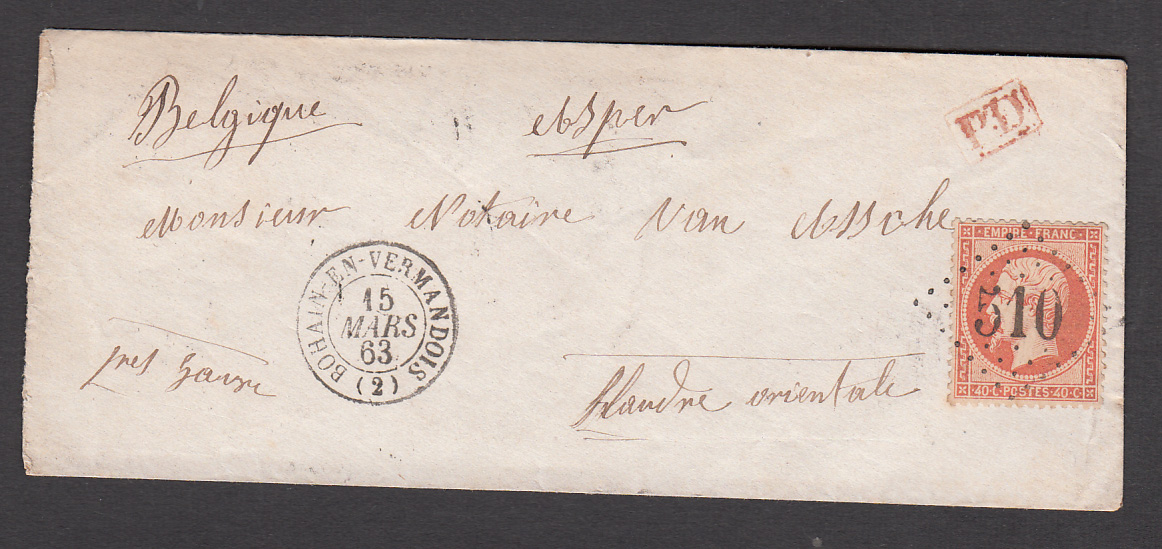 Belgique Asper
P.D.
Monsieur Notaire Van Assche
EMPIRE FRANC
510
40 C POSTES 40 C
BOHAIN-EN-VERMANDOIS
15
MARS
63
(2)
près Gavre
Flandre orientale